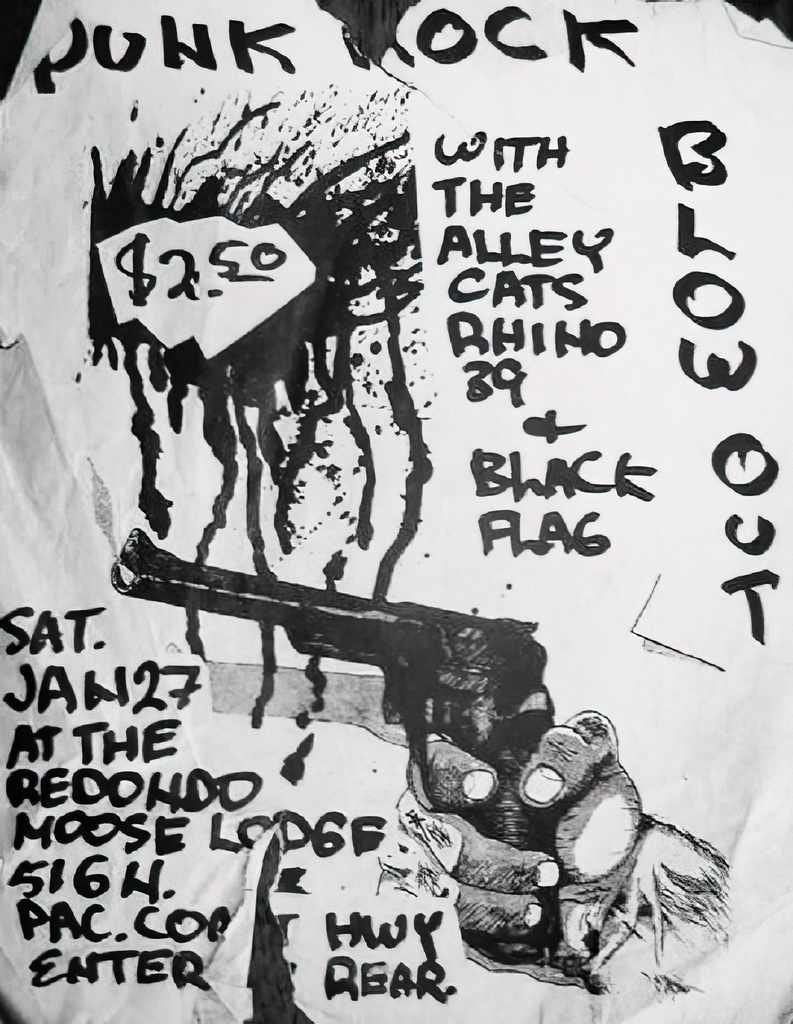 PUNK ROCK
BLOW OUT
$2.50
WITH
THE
ALLEY
CATS
RHINO
39
&
BLACK
FLAG
SAT.
JAN 27
AT THE
REDONDO
MOOSE LODGE
516 N.
PAC. COAST HWY
ENTER REAR.